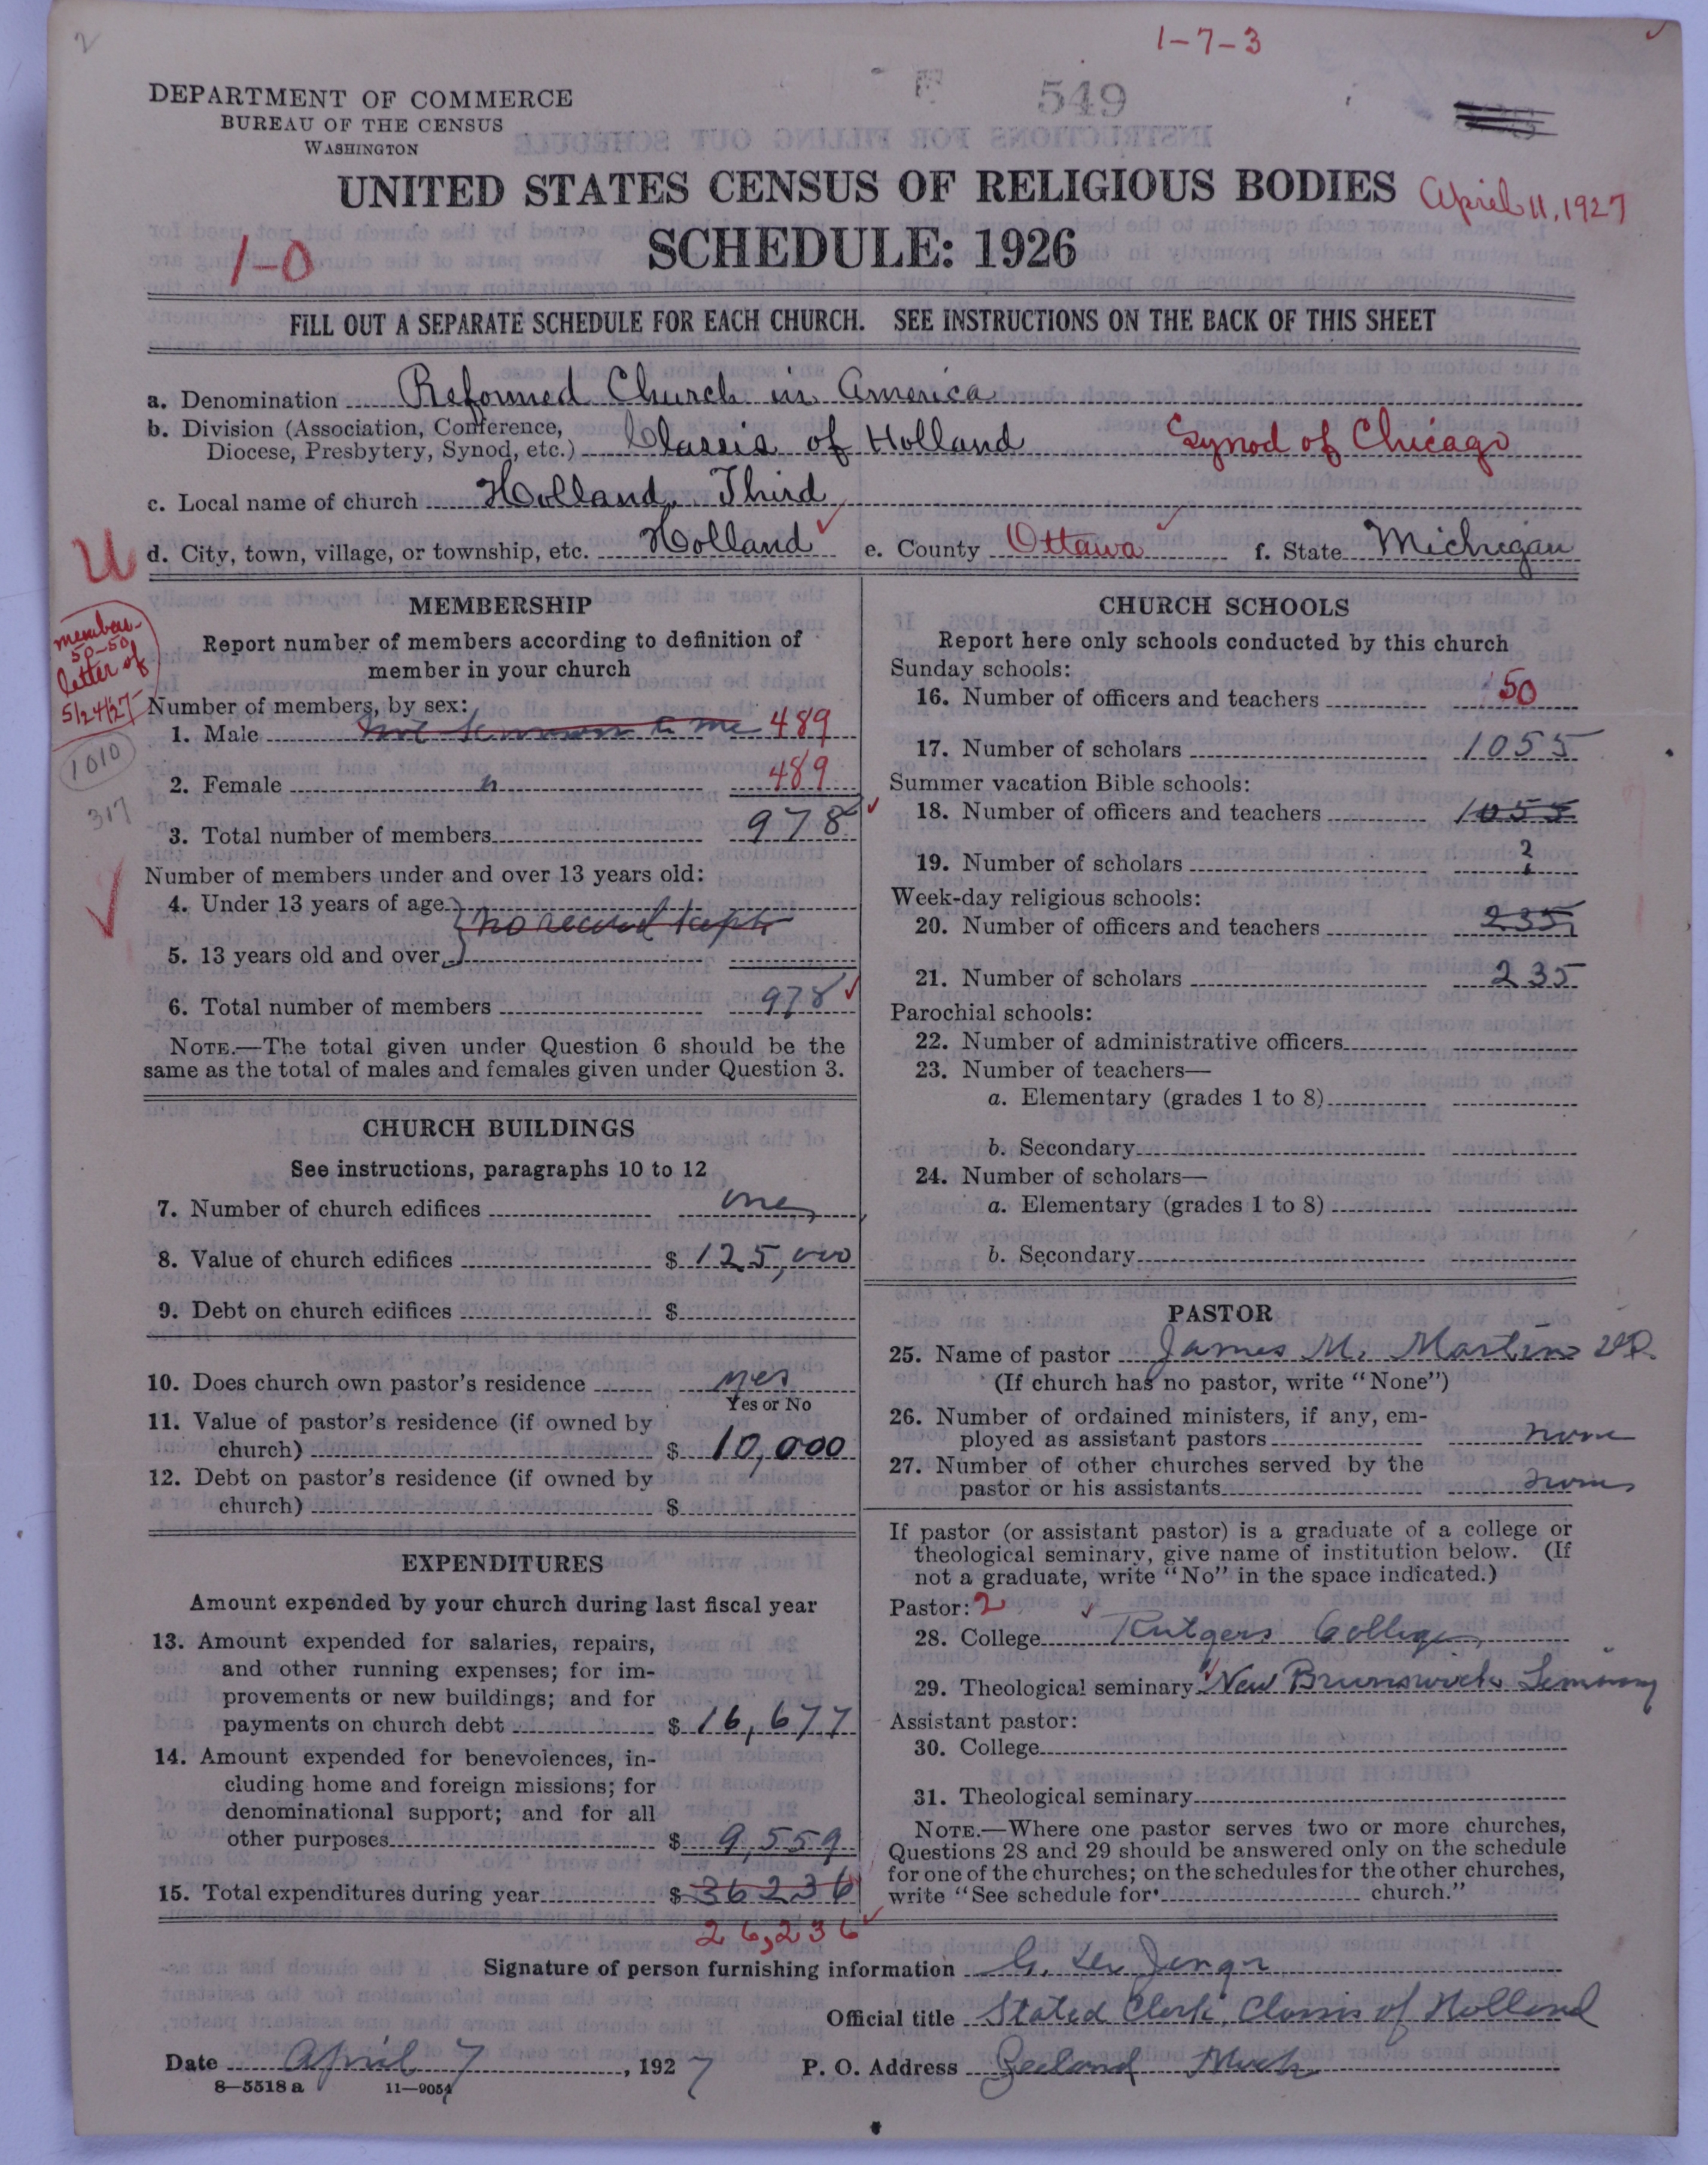 2
1-7-3
DEPARTMENT OF COMMERCE
BUREAU OF THE CENSUS
WASHINGTON
549
UNITED STATES CENSUS OF RELIGIOUS BODIES
April 11, 1927
SCHEDULE: 1926
1-0
FILL OUT A SEPARATE SCHEDULE FOR EACH CHURCH. SEE INSTRUCTIONS ON THE BACK OF THIS SHEET
a. Denomination Reformed Church in America
b. Division (Association, Conference, Diocese, Presbytery, Synod, etc.) Classis of Holland Synod of Chicago
c. Local name of church Holland, Third
U
d. City, town, village, or township, etc. Holland e. County Ottawa f. State Michigan
MEMBERSHIP
Report number of members according to definition of
member in your church
members
50-50
letter of
5/24/27
1010
317
Number of members, by sex:
1. Male not known to me 489
2. Female " 489
3. Total number of members 978
Number of members under and over 13 years old:
4. Under 13 years of age } no record kept
5. 13 years old and over
6. Total number of members 978
NOTE.—The total given under Question 6 should be the
same as the total of males and females given under Question 3.
CHURCH BUILDINGS
See instructions, paragraphs 10 to 12
7. Number of church edifices one
8. Value of church edifices $ 125,000
9. Debt on church edifices $
10. Does church own pastor's residence yes
Yes or No
11. Value of pastor's residence (if owned by
church) $ 10,000
12. Debt on pastor's residence (if owned by
church) $
EXPENDITURES
Amount expended by your church during last fiscal year
13. Amount expended for salaries, repairs,
and other running expenses; for im-
provements or new buildings; and for
payments on church debt $ 16,677
14. Amount expended for benevolences, in-
cluding home and foreign missions; for
denominational support; and for all
other purposes $ 9,559
15. Total expenditures during year $ 36236
26,236
CHURCH SCHOOLS
Report here only schools conducted by this church
Sunday schools:
16. Number of officers and teachers 50
17. Number of scholars 1055
Summer vacation Bible schools:
18. Number of officers and teachers 1055
19. Number of scholars ?
Week-day religious schools:
20. Number of officers and teachers 235
21. Number of scholars 235
Parochial schools:
22. Number of administrative officers
23. Number of teachers—
a. Elementary (grades 1 to 8)
b. Secondary
24. Number of scholars—
a. Elementary (grades 1 to 8)
b. Secondary
PASTOR
25. Name of pastor James M. Martin
(If church has no pastor, write "None")
26. Number of ordained ministers, if any, em-
ployed as assistant pastors none
27. Number of other churches served by the
pastor or his assistants none
If pastor (or assistant pastor) is a graduate of a college or
theological seminary, give name of institution below. (If
not a graduate, write "No" in the space indicated.)
Pastor: 2
28. College Rutgers College
29. Theological seminary New Brunswick Seminary
Assistant pastor:
30. College
31. Theological seminary
NOTE.—Where one pastor serves two or more churches,
Questions 28 and 29 should be answered only on the schedule
for one of the churches; on the schedules for the other churches,
write "See schedule for church."
Signature of person furnishing information G.
Official title Stated Clerk, Classis of Holland
Date April 7, 1927 P. O. Address Zeeland Mich
8—5518 a 11—9054